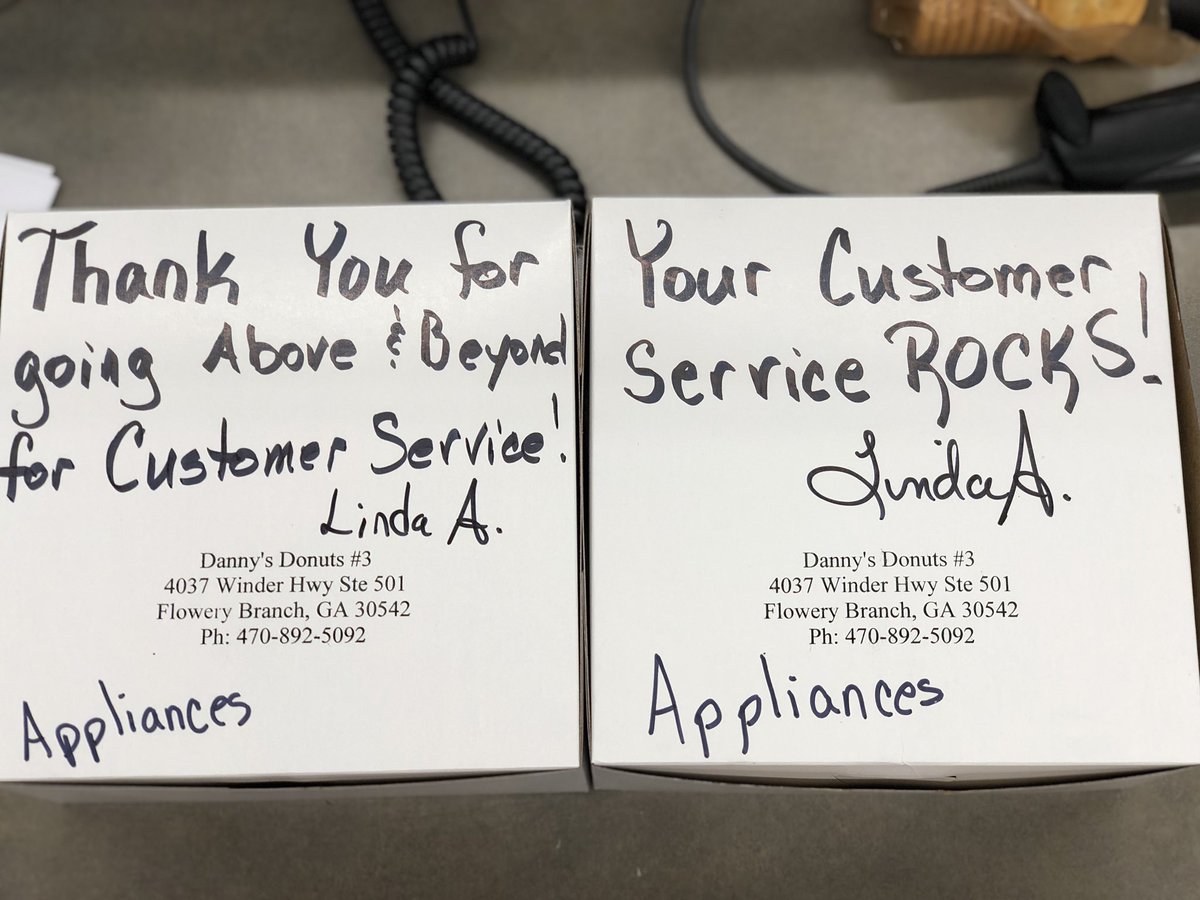 Thank You for
going Above & Beyond
for Customer Service!
Linda A.
Danny's Donuts #3
4037 Winder Hwy Ste 501
Flowery Branch, GA 30542
Ph: 470-892-5092
Appliances
Your Customer
Service ROCKS!
Linda A.
Danny's Donuts #3
4037 Winder Hwy Ste 501
Flowery Branch, GA 30542
Ph: 470-892-5092
Appliances